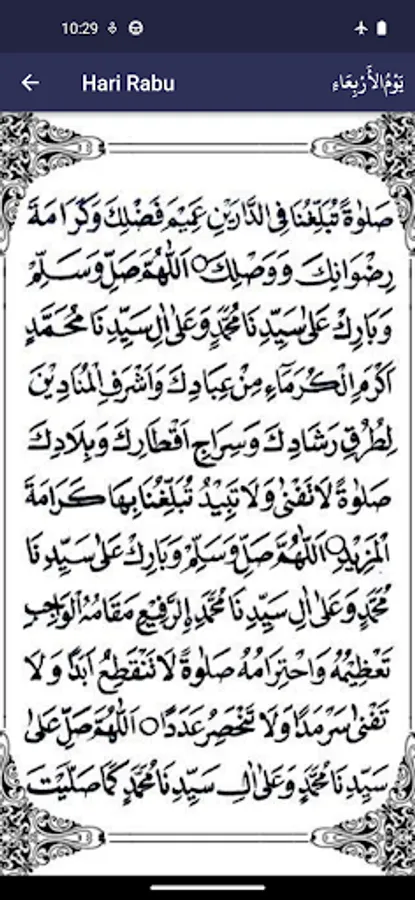 10:29
Hari Rabu
يَوْمُ الأَرْبِعَاءِ
صَلٰوةً تُبَلِّغُنَا فِى الدَّارَيْنِ عَمِيْمَ فَضْلِكَ وَكَرَامَةَ
رِضْوَانِكَ وَوَصْلِكَ ○ اَللّٰهُمَّ صَلِّ وَسَلِّمْ
وَبَارِكْ عَلٰى سَيِّدِنَا مُحَمَّدٍ وَعَلٰى اٰلِ سَيِّدِنَا مُحَمَّدٍ
اَكْرَمِ الْكُرَمَآءِ مِنْ عِبَادِكَ وَاَشْرَفِ الْمُنَادِيْنَ
لِطُرُقِ رَشَادِكَ وَسِرَاجِ اَقْطَارِكَ وَبِلَادِكَ
صَلٰوةً لَا تَفْنٰى وَلَا تَبِيْدُ تُبَلِّغُنَا بِهَا كَرَامَةَ
الْمَزِيْدِ ○ اَللّٰهُمَّ صَلِّ وَسَلِّمْ وَبَارِكْ عَلٰى سَيِّدِنَا
مُحَمَّدٍ وَعَلٰى اٰلِ سَيِّدِنَا مُحَمَّدٍ اِلرَّفِيْعِ مَقَامُهُ الْوَاجِبِ
تَعْظِيْمُهُ وَاحْتِرَامُهُ صَلٰوةً لَا تَنْقَطِعُ اَبَدًا وَلَا
تَفْنٰى سَرْمَدًا وَلَا تَنْحَصِرُ عَدَدًا ○ اَللّٰهُمَّ صَلِّ عَلٰى
سَيِّدِنَا مُحَمَّدٍ وَعَلٰى اٰلِ سَيِّدِنَا مُحَمَّدٍ كَمَا صَلَّيْتَ